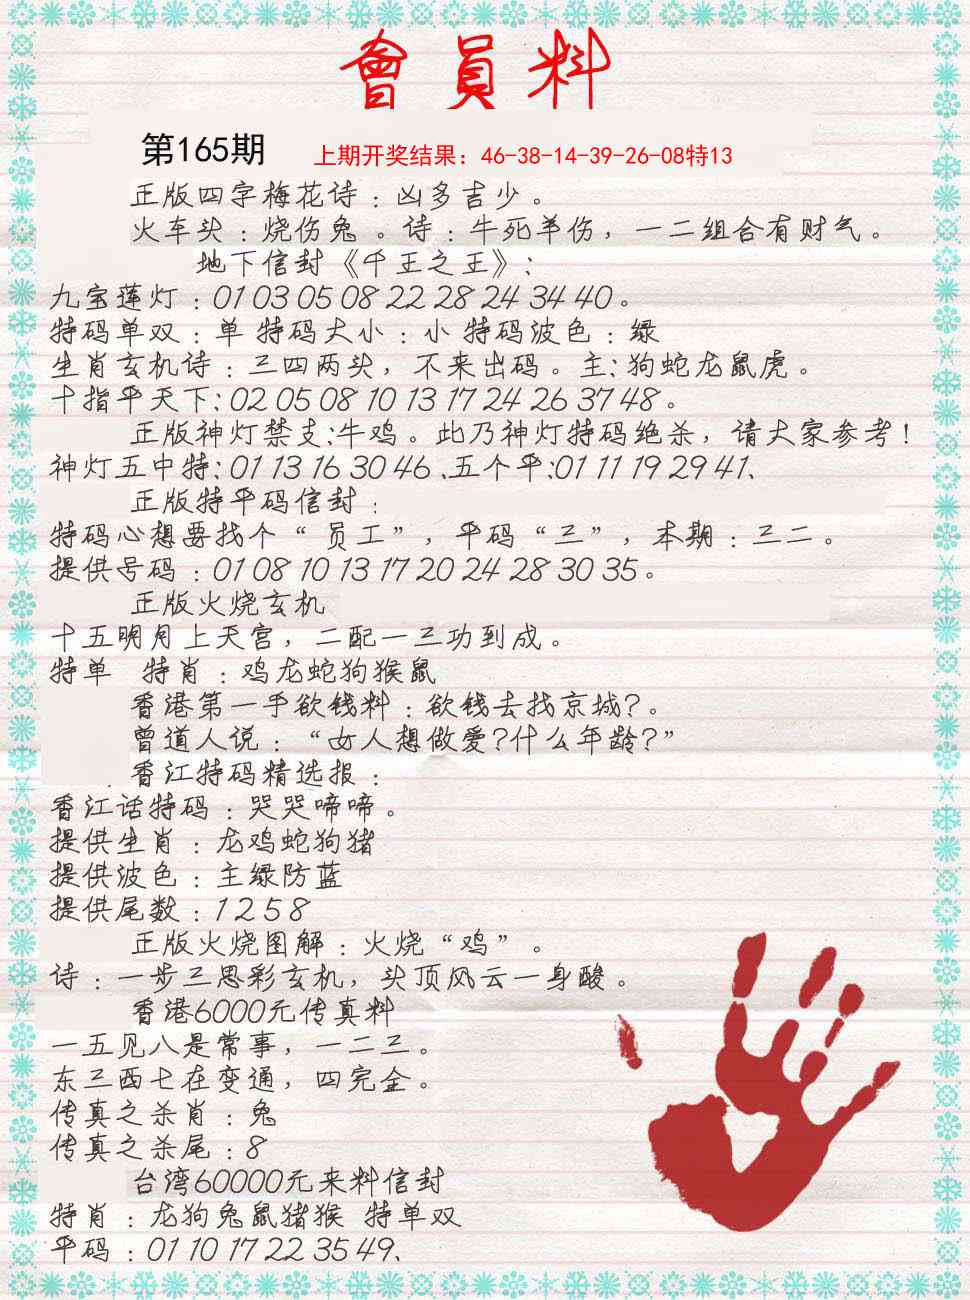 會員料
第165期 上期开奖结果：46-38-14-39-26-08特13
正版四字梅花诗：凶多吉少。
火车头：烧伤兔。诗：牛死羊伤，一二组合有财气。
地下信封《千王之王》：
九宝莲灯：01 03 05 08 22 28 24 34 40。
特码单双：单 特码大小：小 特码波色：绿
生肖玄机诗：三四两头，不来出码。主：狗蛇龙鼠虎。
十指平天下：02 05 08 10 13 17 24 26 37 48。
正版神灯禁支：牛鸡。此乃神灯特码绝杀，请大家参考！
神灯五中特：01 13 16 30 46、五个平：01 11 19 29 41、
正版特平码信封：
特码心想要找个“员工”，平码“三”，本期：三二。
提供号码：01 08 10 13 17 20 24 28 30 35。
正版火烧玄机
十五明月上天宫，二配一三功到成。
特单 特肖：鸡龙蛇狗猴鼠
香港第一手欲钱料：欲钱去找京城？。
曾道人说：“女人想做爱？什么年龄？”
香江特码精选报：
香江话特码：哭哭啼啼。
提供生肖：龙鸡蛇狗猪
提供波色：主绿防蓝
提供尾数：1 2 5 8
正版火烧图解：火烧“鸡”。
诗：一步三思彩玄机，头顶风云一身酸。
香港6000元传真料
一五见八是常事，一二三。
东三西七在变通，四完全。
传真之杀肖：兔
传真之杀尾：8
台湾60000元来料信封
特肖：龙狗兔鼠猪猴 特单双
平码：01 10 17 22 35 49、